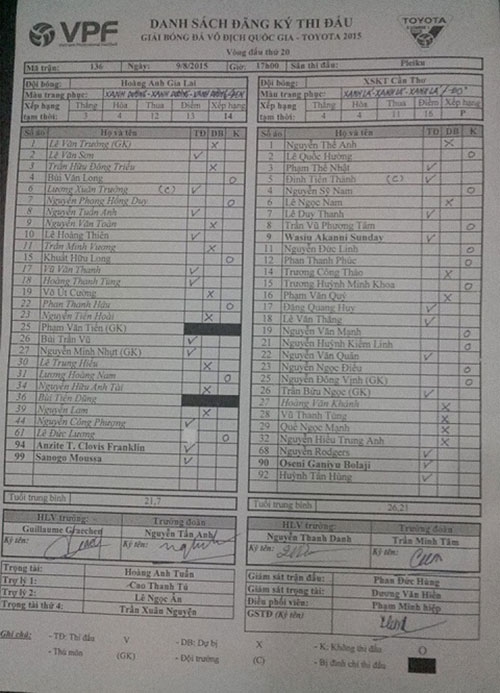 VPF
DANH SÁCH ĐĂNG KÝ THI ĐẤU
GIẢI BÓNG ĐÁ VÔ ĐỊCH QUỐC GIA - TOYOTA 2015
Vòng đấu thứ 20
TOYOTA
Mã trận: 136 Ngày: 9/8/2015 Giờ: 17h00 Sân thi đấu: Pleiku
Đội bóng: Hoàng Anh Gia Lai
Màu trang phục: XANH DƯƠNG - XANH DƯƠNG - XANH DƯƠNG
Xếp hạng tạm thời: Thắng Hòa Thua Điểm Xếp hạng
3 4 12 13 14
Số áo Họ và tên TĐ DB K
1 Lê Văn Trường (GK) X
2 Lê Văn Sơn V
3 Trần Hữu Đông Triều X
4 Bùi Văn Long O
6 Lương Xuân Trường (C) V
7 Nguyễn Phong Hồng Duy O
8 Nguyễn Tuấn Anh V
9 Nguyễn Văn Toàn X
10 Lê Hoàng Thiên V
11 Trần Minh Vương X
15 Khuất Hữu Long O
17 Vũ Văn Thanh V
18 Hoàng Thanh Tùng V
19 Võ Út Cường X
22 Phan Thanh Hậu O
23 Nguyễn Tiến Hoài X
25 Phạm Văn Tiến (GK)
26 Bùi Trần Vũ V
27 Nguyễn Minh Nhựt (GK) V
30 Lê Trung Hiếu X
31 Lương Hoàng Nam O
34 Nguyễn Hữu Anh Tài X
36 Bùi Tiến Dũng
39 Nguyễn Lam X
44 Nguyễn Công Phượng V
61 Lê Đức Lương O
94 Anzite T. Clovis Franklin V
99 Sanogo Moussa V
Tuổi trung bình 21,7
HLV trưởng: Trưởng đoàn
Guillaume Graechen Nguyễn Tấn Anh
Ký tên: Ký tên:
Trọng tài: Hoàng Anh Tuấn
Trợ lý 1: Cao Thanh Tú
Trợ lý 2: Lê Ngọc Ân
Trọng tài thứ 4: Trần Xuân Nguyện
Đội bóng: XSKT Cần Thơ
Màu trang phục: XANH LÁ - XANH LÁ - XANH LÁ
Xếp hạng tạm thời: Thắng Hòa Thua Điểm Xếp hạng
4 4 11 16
Số áo Họ và tên TĐ DB K
1 Nguyễn Thế Anh X
2 Lê Quốc Hường O
3 Phạm Thế Nhật V
5 Đinh Tiến Thành (C) V
4 Nguyễn Sỹ Nam O
6 Lê Ngọc Nam X
7 Lê Duy Thanh V
8 Trần Vũ Phương Tâm O
9 Wasiu Akanni Sunday V
11 Nguyễn Đức Linh O
12 Phan Thanh Phúc O
14 Trương Công Thảo X
15 Trương Huỳnh Minh Khoa O
16 Phạm Văn Quý X
17 Đặng Quang Huy V
18 Lê Văn Thắng V
19 Nguyễn Văn Mạnh O
21 Nguyễn Huỳnh Kiếm Linh O
22 Nguyễn Văn Quân V
23 Nguyễn Ngọc Điểu O
25 Nguyễn Đông Vịnh (GK) O
26 Trần Bửu Ngọc (GK) V
27 Hoàng Văn Khánh X
28 Vũ Thanh Tùng X
29 Quế Ngọc Mạnh X
32 Nguyễn Hiếu Trung Anh X
68 Nguyễn Rodgers V
90 Oseni Ganiyu Bolaji V
92 Huỳnh Tấn Hùng V
Tuổi trung bình 26,21
HLV trưởng: Trưởng đoàn
Nguyễn Thanh Danh Trần Minh Tâm
Ký tên: Ký tên:
Giám sát trận đấu: Phan Đức Hùng
Giám sát trọng tài: Dương Văn Hiền
Điều phối viên: Phạm Minh hiệp
GSTĐ (Ký tên)
Ghi chú: - TĐ: Thi đấu V - DB: Dự bị X - K: Không thi đấu O
- Thủ môn (GK) - Đội trưởng (C) - Bị đình chỉ thi đấu